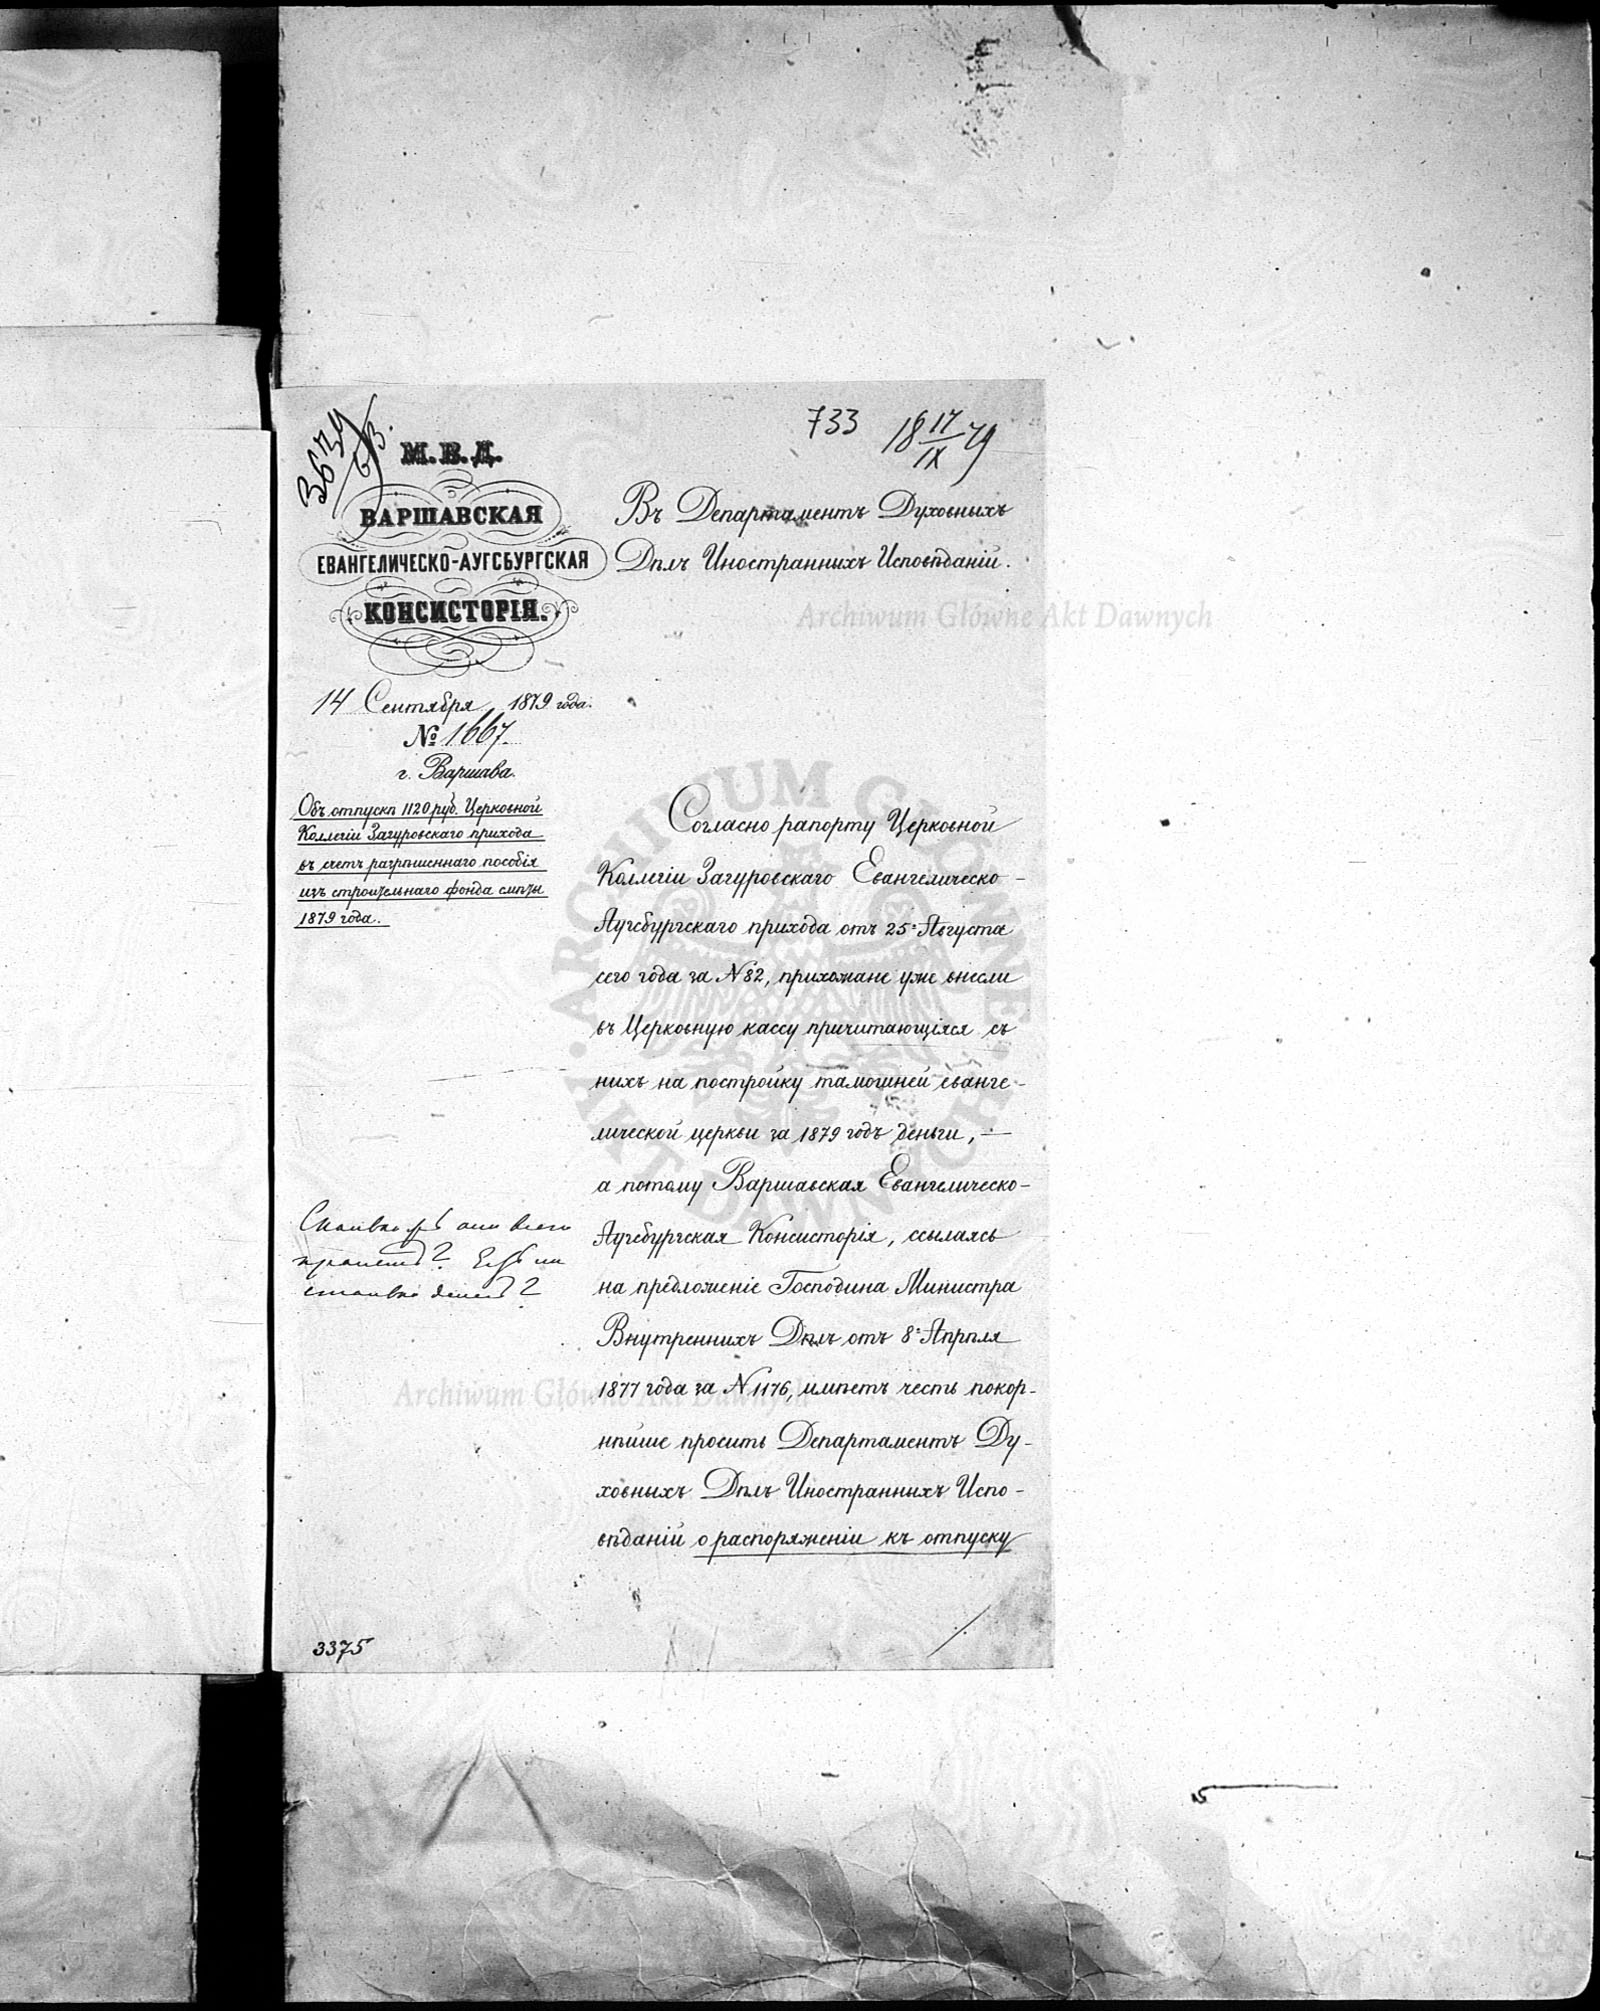 733 18 17/IX 79
3634/63.
М. В. Д.
ВАРШАВСКАЯ
ЕВАНГЕЛИЧЕСКО-АУГСБУРГСКАЯ
КОНСИСТОРІЯ.
14 Сентября 1879 года.
№ 1667.
г. Варшава.
Объ отпускѣ 1120 руб. Церковной
Коллегіи Загуровскаго прихода
въ счетъ разрѣшеннаго пособія
изъ строительнаго фонда смѣты
1879 года.
Въ Департаментъ Духовныхъ
Дѣлъ Иностранныхъ Исповѣданій.
Согласно рапорту Церковной
Коллегіи Загуровскаго Евангелическо-
Аугсбургскаго прихода отъ 25го Августа
сего года за N 82, прихожане уже внесли
въ Церковную кассу причитающіяся съ
нихъ на постройку тамошней еванге-
лической церкви за 1879 годъ деньги, —
а потому Варшавская Евангелическо-
Аугсбургская Консисторія, ссылаясь
на предложеніе Господина Министра
Внутреннихъ Дѣлъ отъ 8го Апрѣля
1877 года за N 1176, имѣетъ честь покор-
нѣйше просить Департаментъ Ду-
ховныхъ Дѣлъ Иностранныхъ Испо-
вѣданій о распоряженіи къ отпуску
3375
Archiwum Główne Akt Dawnych
Archiwum Główne Akt Dawnych
ARCHIWUM GŁÓWNE AKT DAWNYCH